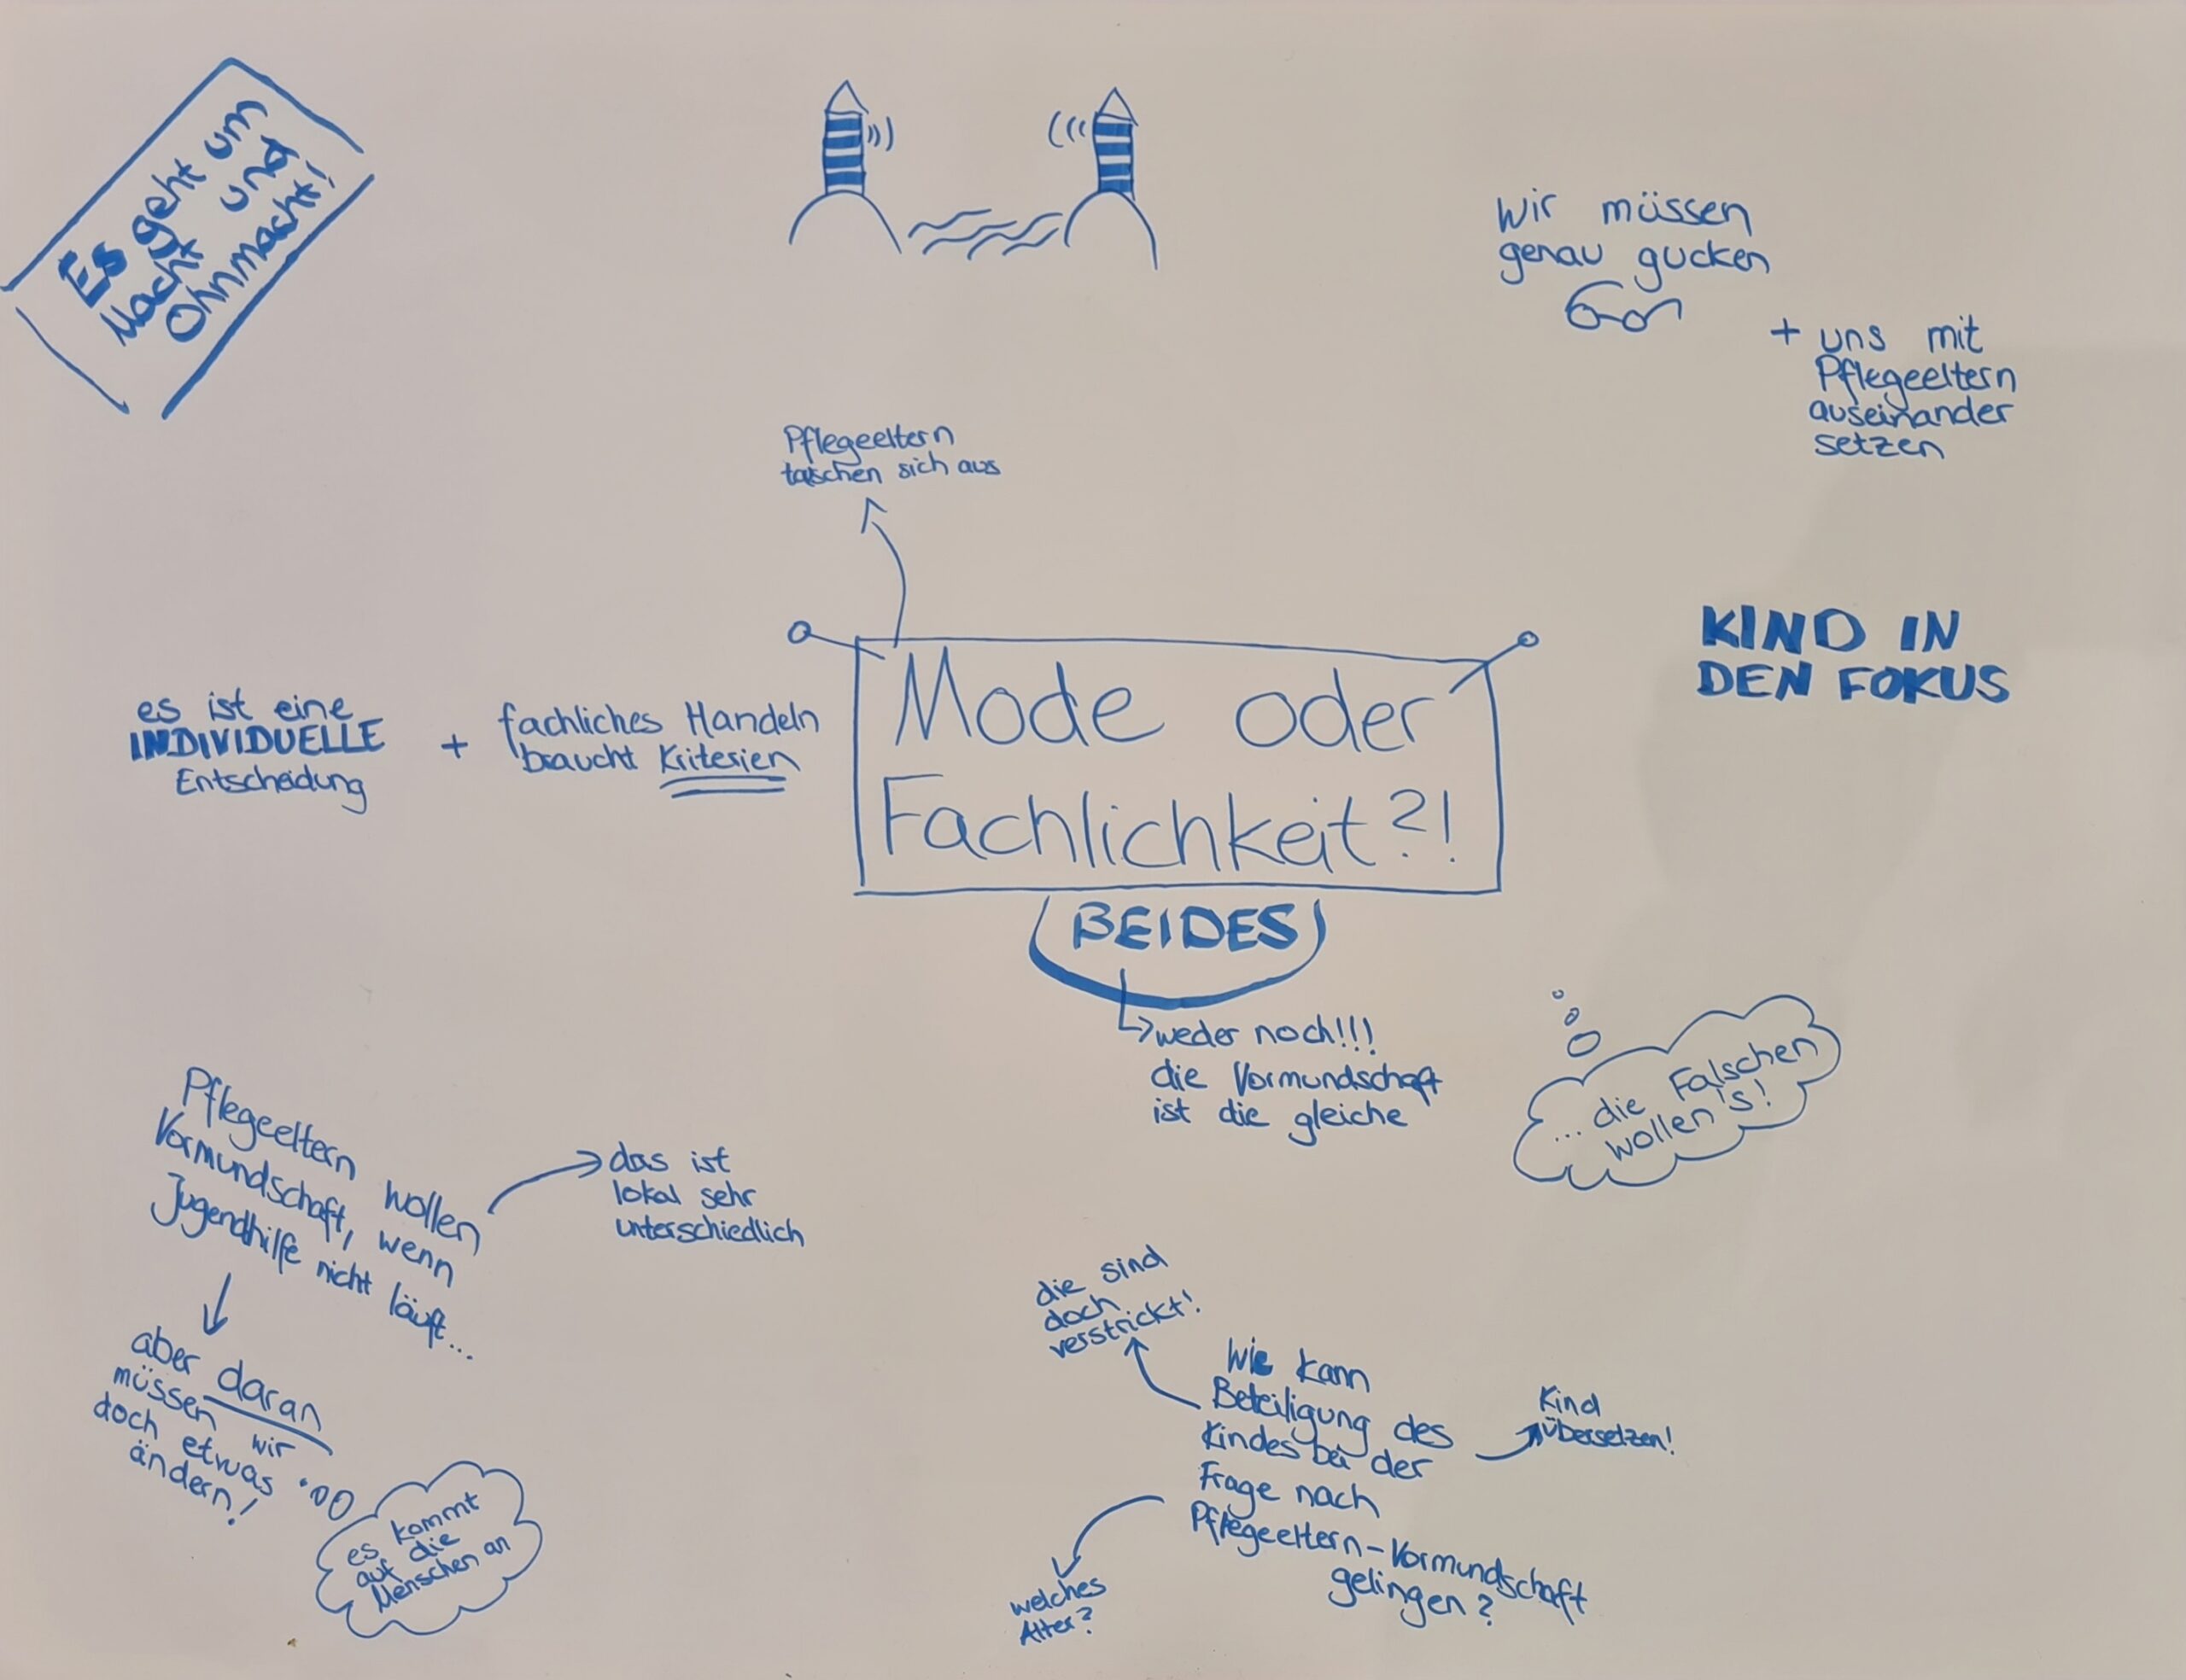 Es geht um
Macht &
Ohnmacht!
Wir müssen
genau gucken
+ uns mit
Pflegeeltern
auseinander
setzen
Pflegeeltern
tauschen sich aus
KIND IN
DEN FOKUS
es ist eine
INDIVIDUELLE
Entscheidung
+
fachliches Handeln
braucht Kriterien
Mode oder
Fachlichkeit?!
BEIDES
weder noch!!!
die Vormundschaft
ist die gleiche
... die Falschen
wollen's!
Pflegeeltern wollen
Vormundschaft, wenn
Jugendhilfe nicht läuft...
das ist
lokal sehr
unterschiedlich
aber daran
müssen wir
doch etwas
ändern!
es kommt
auf die
Menschen an
die sind
doch
verstrickt!
Wie kann
Beteiligung des
Kindes bei der
Frage nach
Pflegeeltern-Vormundschaft
gelingen?
Kind
übersetzen!
welches
Alter?